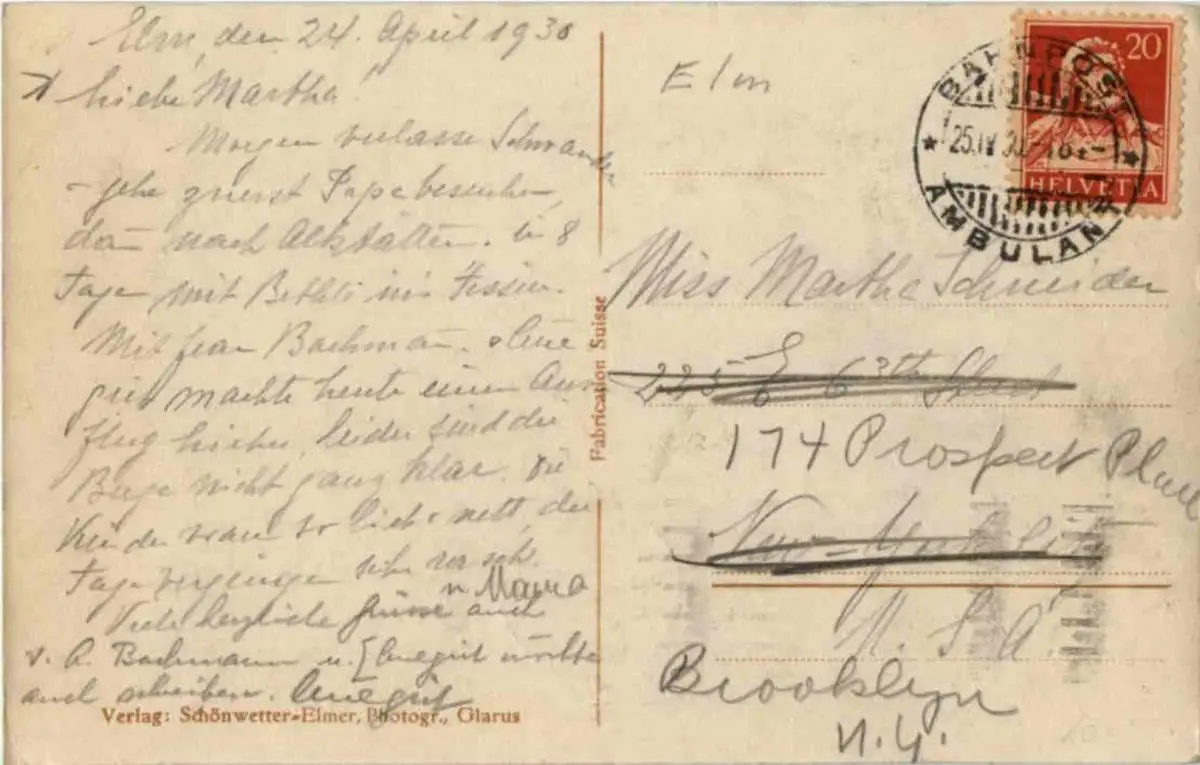 Elm, den 24. April 1930
Liebe Martha!
Morgen verlasse Schwanden
- gehe zuerst Papa besuchen,
dan nach Altstätten. In 8
Tagen mit Bethli ins Tessin.
Mit frau Bachman. &
machte heute einen Aus
flug hieher, leider sind die
Berge nicht ganz klar. Die
Kinder waren so lieb & nett, die
Tage vergingen sehr rasch.
Viele herzliche Grüsse auch
v. Mama
v. A. Bachmann u. möchte
auch schreiben.
Verlag: Schönwetter-Elmer, Photogr., Glarus
Fabrication Suisse
Elm
20
HELVETIA
BAHNPOST
25.IV.30.
AMBULANT
Miss Martha Schneider
225 E 63th Street
174 Prospect Place
New-York City
U. S. A.
Brooklyn
N.Y.